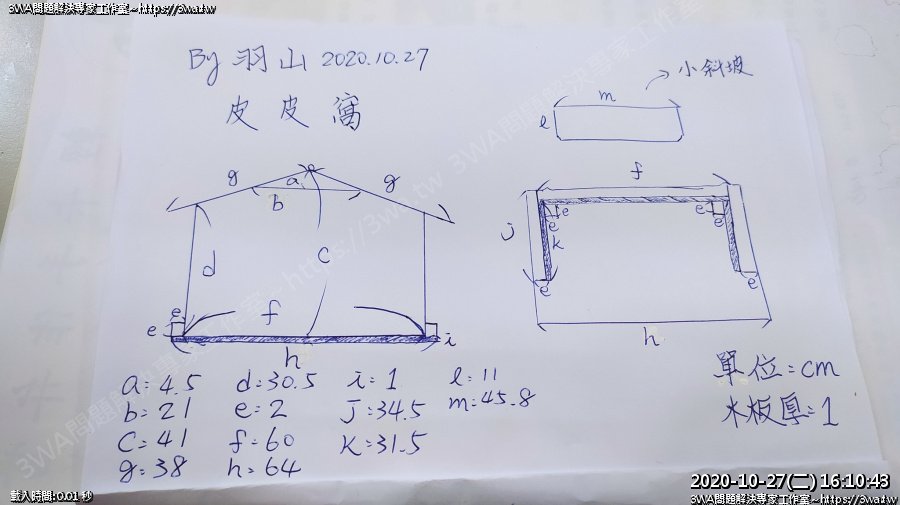 3WA問題解決專家工作室~https://3wa.tw
By 羽山 2020.10.27
皮皮窩
小斜坡
m
l
g
a
g
b
d
c
e
e
f
h
i
f
j
e
e
e
e
k
e
e
h
a=4.5
b=21
C=41
g=38
d=30.5
e=2
f=60
h=64
i=1
J=34.5
K=31.5
l=11
m=45.8
單位=cm
木板厚=1
3WA問題解決專家工作室~https://3wa.tw
載入時間:0.01 秒
2020-10-27(二) 16:10:43
3WA問題解決專家工作室~https://3wa.tw